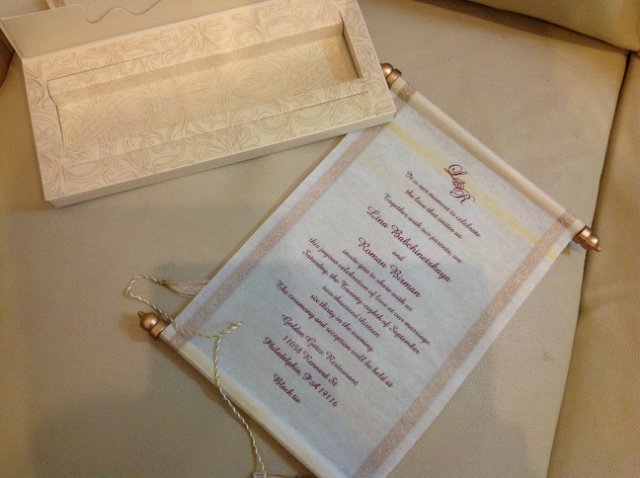 L&R
It is our moment to celebrate
the love that unites us
Together with our parents, we
Lina Babchinetskaya
and
Roman Birman
invite you to share with us
this joyous celebration of love at our marriage
Saturday, the Twenty-eighth of September
two thousand thirteen
six thirty in the evening
The ceremony and reception will be held at
Golden Gates Restaurant
11058 Rennard St
Philadelphia, PA 19116
Black tie